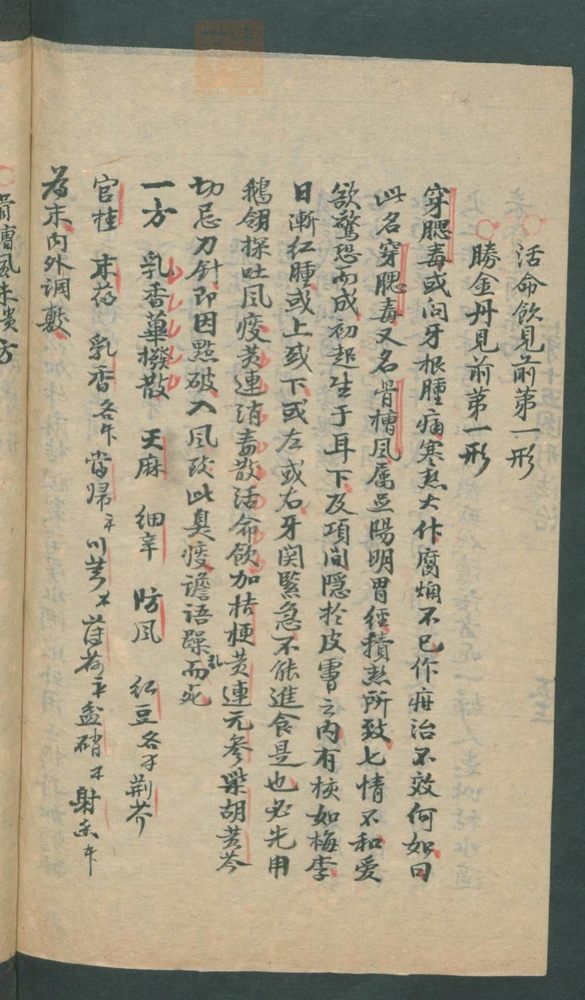 活命飲見前第一形
勝金丹見前第一形
穿腮毒或问牙根腫痛寒热大作腐爛不已作疳治不效何如曰
此名穿腮毒又名骨槽风属足陽明胃经積热所致七情不和爱
欲驚恐而成初起生于耳下及項间隐於皮膚之内有核如梅李
日漸红腫或上或下或左或右牙関緊急不能進食是也必先用
鵝翎探吐风痰黄連消毒散活命飲加桔梗黄連元参柴胡黄芩
切忌刀針即因點破入风致此臭痰谵语躁乱而死
一方 乳香蓽撥散 天麻 細辛 防风 红豆各 荆芥
官桂 末药 乳香各 當归 川芎 薄荷 盆硝 射香
為末内外调敷
骨槽风未溃方